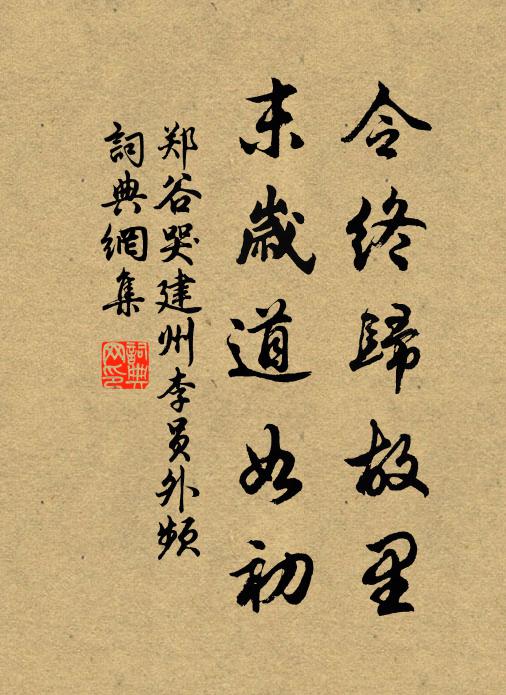 令终歸故里
末歲道如初
郑谷哭建州李员外频
詞典網集
詞典網印